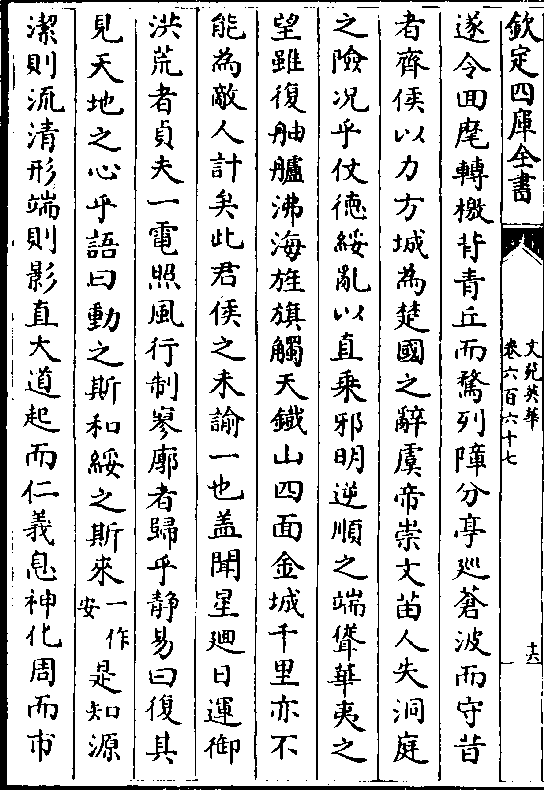 欽定四庫全書
文苑英華
卷六百六十七
十六
遂令回麾轉檄背青丘而騖列障分亭廵蒼波而守昔
者齊侯以力方城為楚國之辭虞帝崇文苗人失洞庭
之險况乎仗德綏亂以直乗邪明逆順之端聳華夷之
望雖復舳艫沸海旌旗觸天鐵山四面金城千里亦不
能為敵人計矣此君侯之未諭一也盖聞星廻日運御
洪荒者貞夫一電照風行制寥廓者歸乎静易曰復其
見天地之心乎語曰動之斯和綏之斯來一作安是知源
潔則流清形端則影直大道起而仁義息神化周而市